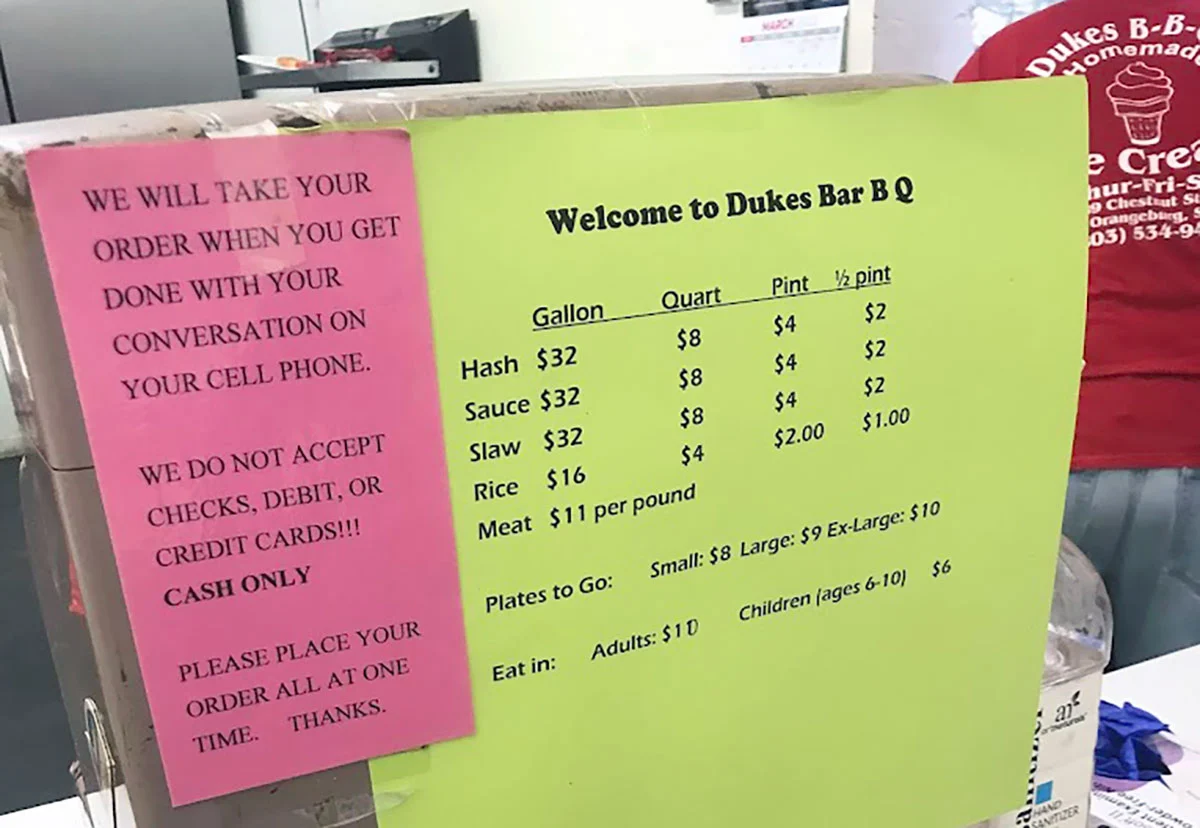 MARCH
Dukes B-B-
Homemade
Cre
hur-Fri-S
9 Chestnut St
Orangeburg,
03) 534-94
WE WILL TAKE YOUR
ORDER WHEN YOU GET
DONE WITH YOUR
CONVERSATION ON
YOUR CELL PHONE.
WE DO NOT ACCEPT
CHECKS, DEBIT, OR
CREDIT CARDS!!!
CASH ONLY
PLEASE PLACE YOUR
ORDER ALL AT ONE
TIME. THANKS.
Welcome to Dukes Bar B Q
Gallon Quart Pint ½ pint
Hash $32 $8 $4 $2
Sauce $32 $8 $4 $2
Slaw $32 $8 $4 $2
Rice $16 $4 $2.00 $1.00
Meat $11 per pound
Plates to Go: Small: $8 Large: $9 Ex-Large: $10
Eat in: Adults: $10 Children (ages 6-10) $6
HAND
SANITIZER